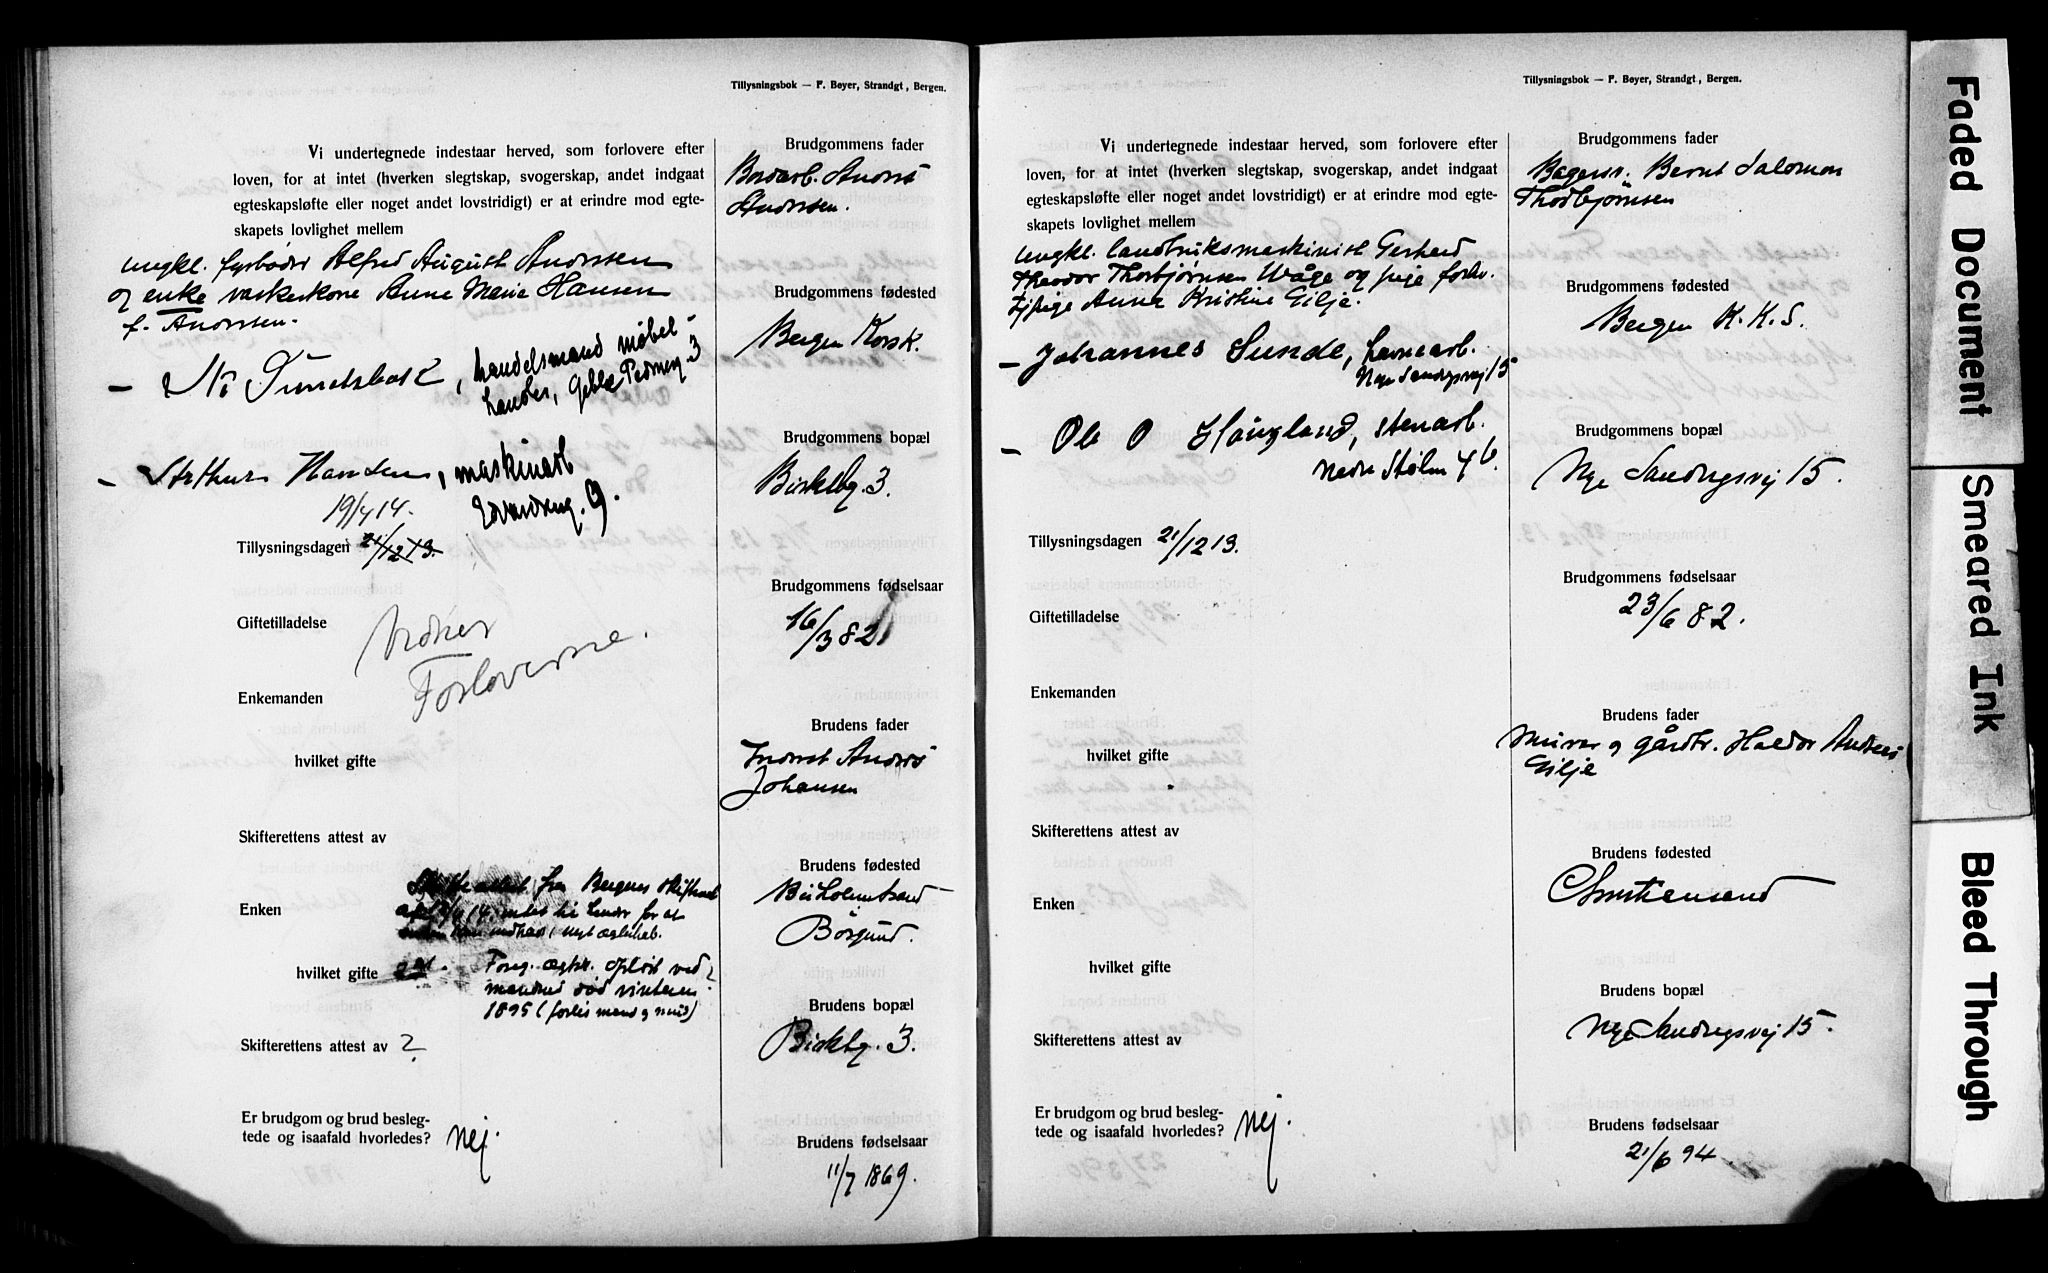 Tillysningsbok — F. Bøyer, Strandgt, Bergen.
Vi undertegnede indestaar herved, som forlovere efter
loven, for at intet (hverken slegtskap, svogerskap, andet indgaat
egteskapsløfte eller noget andet lovstridigt) er at erindre mod egte-
skapets lovlighet mellem
ungkl. fyrbøder Alfred August Andersen
og enke vaskerkone Anne Marie Hansen
f. Andersen.
handelsmand møbel-
3
— Arthur Hansen, maskinarb
9.
19/4 14.
Tillysningsdagen 21/12 13.
Giftetilladelse
Forloverne.
Enkemanden
hvilket gifte
Skifterettens attest av
attest fra Bergens skifteret
Enken
14. intet til hinder for at
nyt ægteskab.
hvilket gifte Foreg. ægtsk. opløst ved
mandens død vinteren
1895 (forlis mand og mus)
Skifterettens attest av ?
Er brudgom og brud besleg-
tede og isaafald hvorledes? Nej.
Brudgommens fader
Anders
Andersen.
Brudgommens fødested
Bergen Korsk.
Brudgommens bopæl
3.
Brudgommens fødselsaar
16/3 82
Brudens fader
Anders
Johansen
Brudens fødested
Borgund.
Brudens bopæl
3.
Brudens fødselsaar
11/7 1869.
Tillysningsbok — F. Bøyer, Strandgt, Bergen.
Vi undertegnede indestaar herved, som forlovere efter
loven, for at intet (hverken slegtskap, svogerskap, andet indgaat
egteskapsløfte eller noget andet lovstridigt) er at erindre mod egte-
skapets lovlighet mellem
ungkl. landbruksmaskinist Gerhard
Theodor Thorbjørnsen Våge og pige forhv.
tj.pige Anna Kristine Gilje.
— Johannes Sunde, havnearb.
Nye Sandvigsvej 15
— Ole O Haugland, stenarb.
Nedre Stølen 4b.
Tillysningsdagen 21/12 13.
Giftetilladelse
Enkemanden
hvilket gifte
Skifterettens attest av
Enken
hvilket gifte
Skifterettens attest av
Er brudgom og brud besleg-
tede og isaafald hvorledes? Nej.
Brudgommens fader
Bagersv. Bernt Salomon
Thorbjørnsen
Brudgommens fødested
Bergen K. K. S.
Brudgommens bopæl
Nye Sandvigsvej 15.
Brudgommens fødselsaar
23/6 82.
Brudens fader
Murer og gårdbr. Haldor Andreas
Gilje
Brudens fødested
Christiansand
Brudens bopæl
Nye Sandvigsvej 15.
Brudens fødselsaar
21/6 94
Faded Document
Smeared Ink
Bleed Through